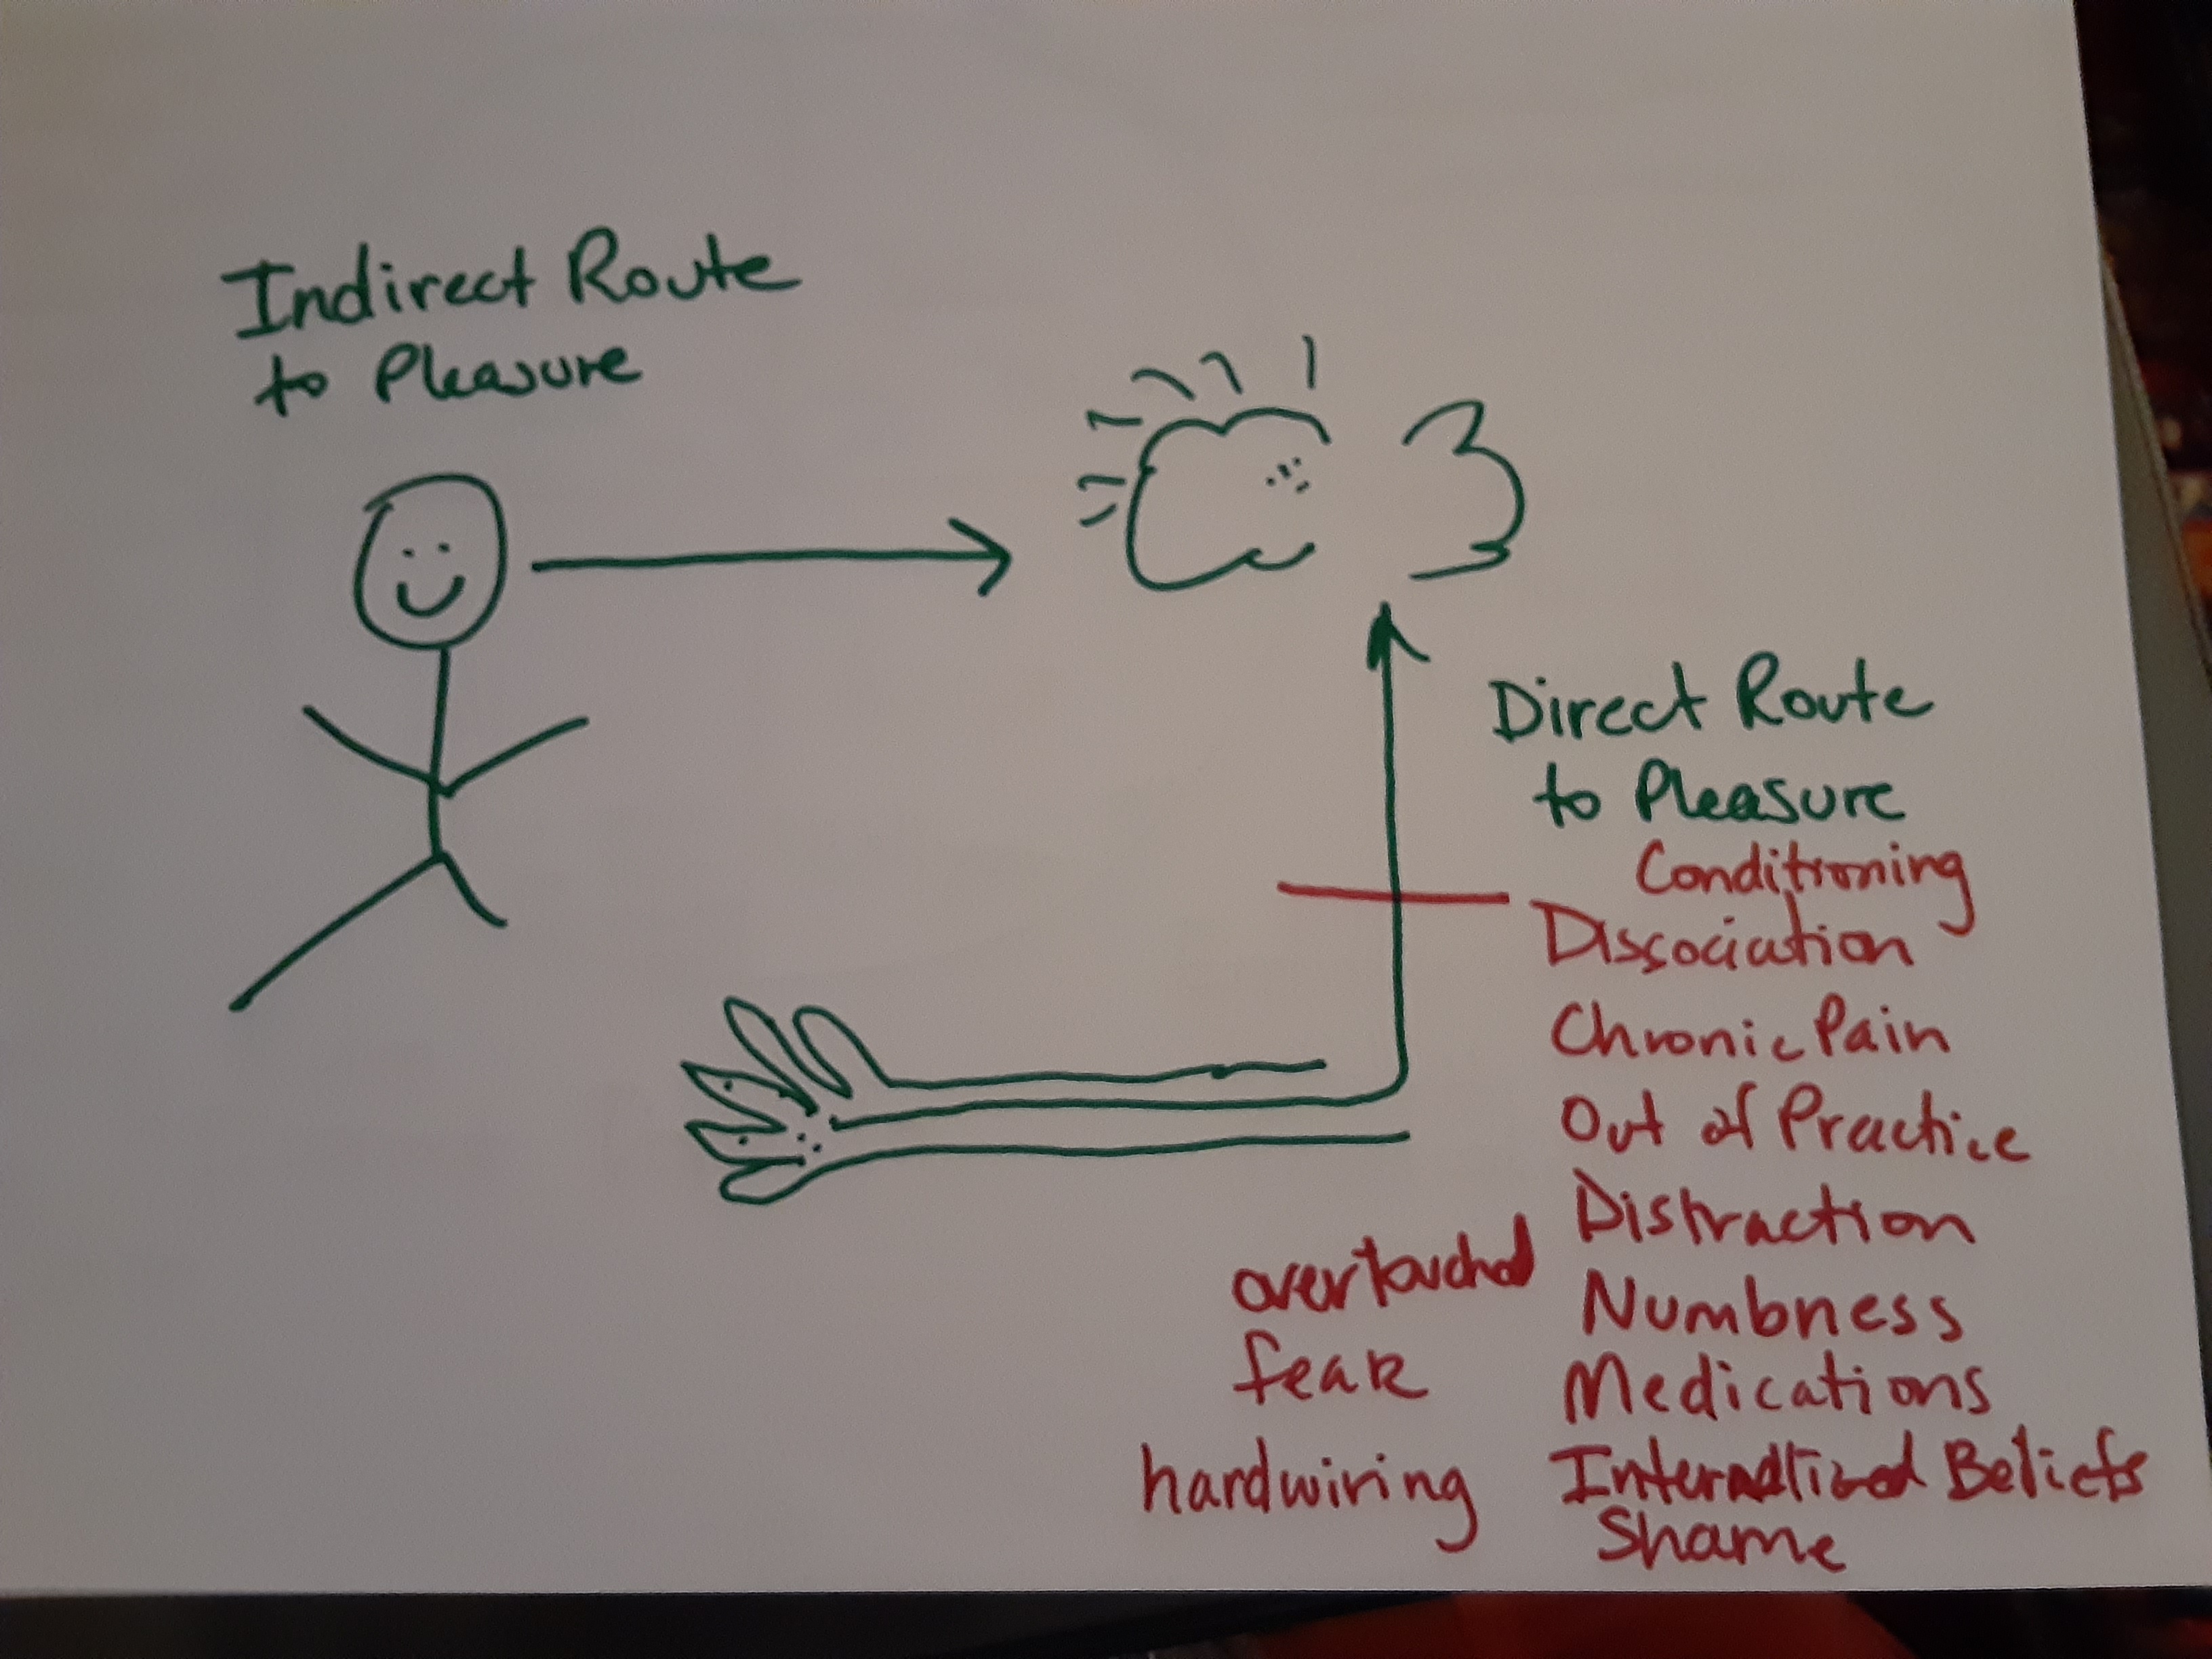 Indirect Route
to Pleasure
Direct Route
to Pleasure
Conditioning
Dissociation
Chronic Pain
Out of Practice
Distraction
overtouched
Numbness
fear
Medications
hardwiring
Internalized Beliefs
Shame